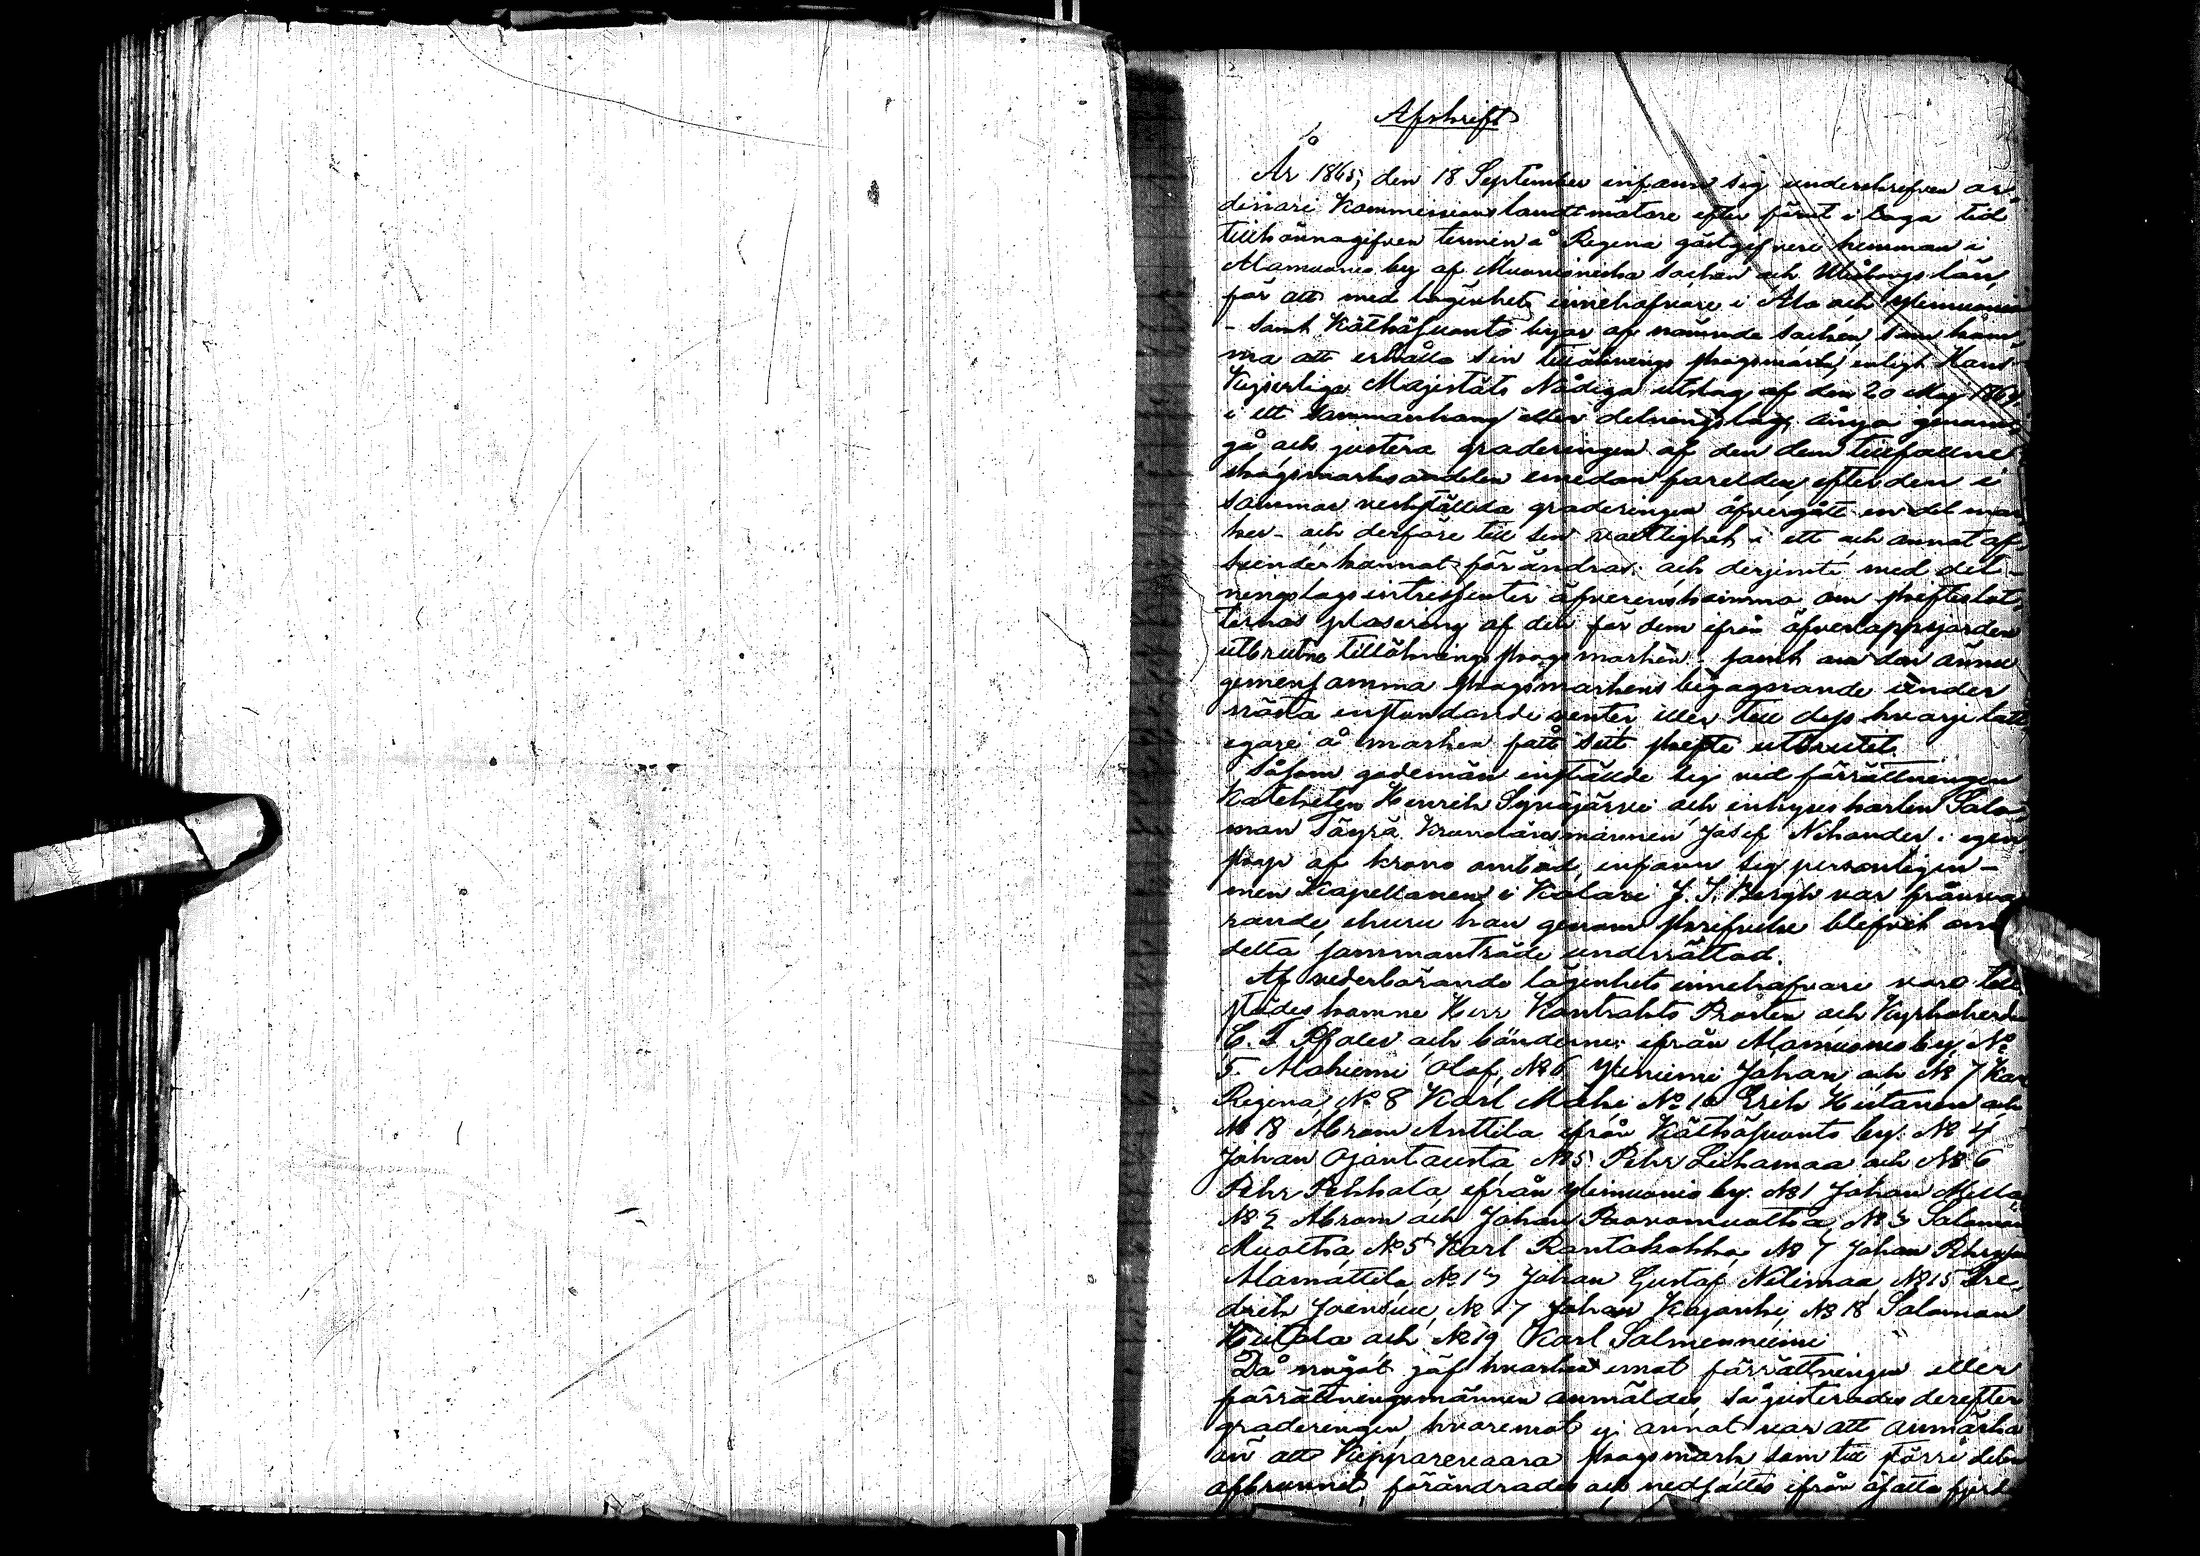 Afskrift
År 1865, den 18 September infann sig underskrefven or-
dinari Kommissionslandtmätare efter förut i laga tid
tillkännagifven termin å Regina gästgifveri hemman i
Alamuonio by af Muonioniska socken och Uleåborgs län,
för att med lägenhets innehafvare i Ala och Ylimuonio
- samt Kätkäsuanto byar af nämnde socken, som kom-
ma att erhålla sin tillöknings skogsmark, enligt Hans
Kejserliga Majestäts Nådiga utslag af den 20 Maj 1864,
i ett sammanhang eller delningslag, ånyo genom-
gå och justera graderingen af den dem tillfallne
skogsmarksandelen emedan skogseldar efter den i
sommar verkställda graderingen öfvergått en del mar-
ker - och derföre till sin växtlighet i ett och annat af-
seende kunnat förändras; och derjemte med del-
ningslags intressenter öfverenskomma om skifteslot-
ternas plasering af den för dem ifrån öfverloppsjorden
utbrutne tillöknings skogsmarken - samt om den ännu
gemensamma skogsmarkens begagnande under
nästa instundande vinter eller till dess hvarje lott-
egare å marken fått sitt skifte utbrutet.
Såsom godemän inställde sig vid förrättningen
Katcheten Henrik Syväjärvi och inhyses karlen Salo-
mon Täyrä. Kronolänsmannen Josef Nihander i egen-
skap af krono ombud, infann sig personligen -
men Kapellanen i Kolari J. J. Bergh var frånva-
rande, ehuru han genom skrifvelse blifvit om
detta sammanträde underrättad.
Af vederbörande lägenhets innehafvare voro till-
städeskomne Herr Kontrakts Prosten och Kyrkoherden
C. J. Pfaler och bönderne: ifrån Alamuonio by No
5. Alaniemi Olof, No 6 Yliniemi Johan, och No 7 Karl
Regina, No 8 Karl Maki No 10 Erik Hietanen och
No 18 Abram Anttila ifrån Kätkäsuanto by: No 4
Johan Ojantausta, No 5 Pehr Liikamaa och No 6
Pehr Pekkala, ifrån Ylimuonio by: No 1 Johan Mella,
No 2 Abram och Johan Rovamuotka, No 3 Salomon
Muotka, No 5 Karl Rantakokko No 7 Johan Pehrsson
Alamattila, No 13 Johan Gustaf Nilimaa, No 15 Fre-
drik Joensuu, No 17 Johan Kajanki, No 18 Salomon
Hietala och No 19 Karl Salmenniemi
Då något jäf hvarken emot förrättningen eller
förrättningsmännen anmäldes, så justerades derefter
graderingen, hvaremot ej annat var att anmärka
än att Kepparivaara skogsmark som till större delen
afbrunnit, förändrades och nedsattes ifrån åfatta fjerd